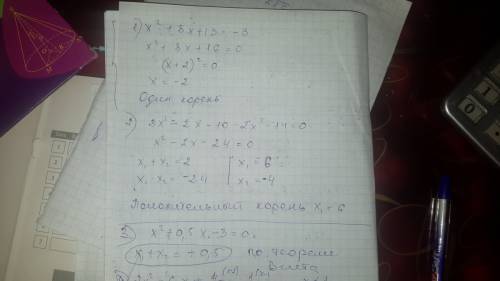 1) x² + 8x + 13 = -3
x² + 8x + 16 = 0
(x + 2)² = 0
x = -2
Один корень
2) 3x² - 2x - 10 - 2x² - 14 = 0
x² - 2x - 24 = 0
x₁ + x₂ = 2 | x₁ = 6
x₁ · x₂ = -24 | x₂ = -4
Положительный корень x₁ = 6
3) x² + 0,5 x - 3 = 0
x₁ + x₂ = -0,5 по теореме
Виета